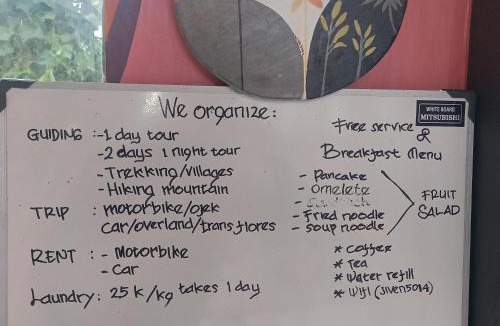 We organize:
WHITE BOARD
MITSUBISHI
GUIDING :-1 day tour
-2 days 1 night tour
-Trekking/villages
-Hiking mountain
TRIP : motorbike/ojek
car/overland/transflores
RENT :- Motorbike
- Car
Laundry: 25 k/kg takes 1 day
Free service
&
Breakfast Menu
- Pancake
- Omelete
- Fried noodle
- Soup noodle
FRUIT
SALAD
* Coffee
* Tea
* Water refill
* Wifi (Jiven5014)